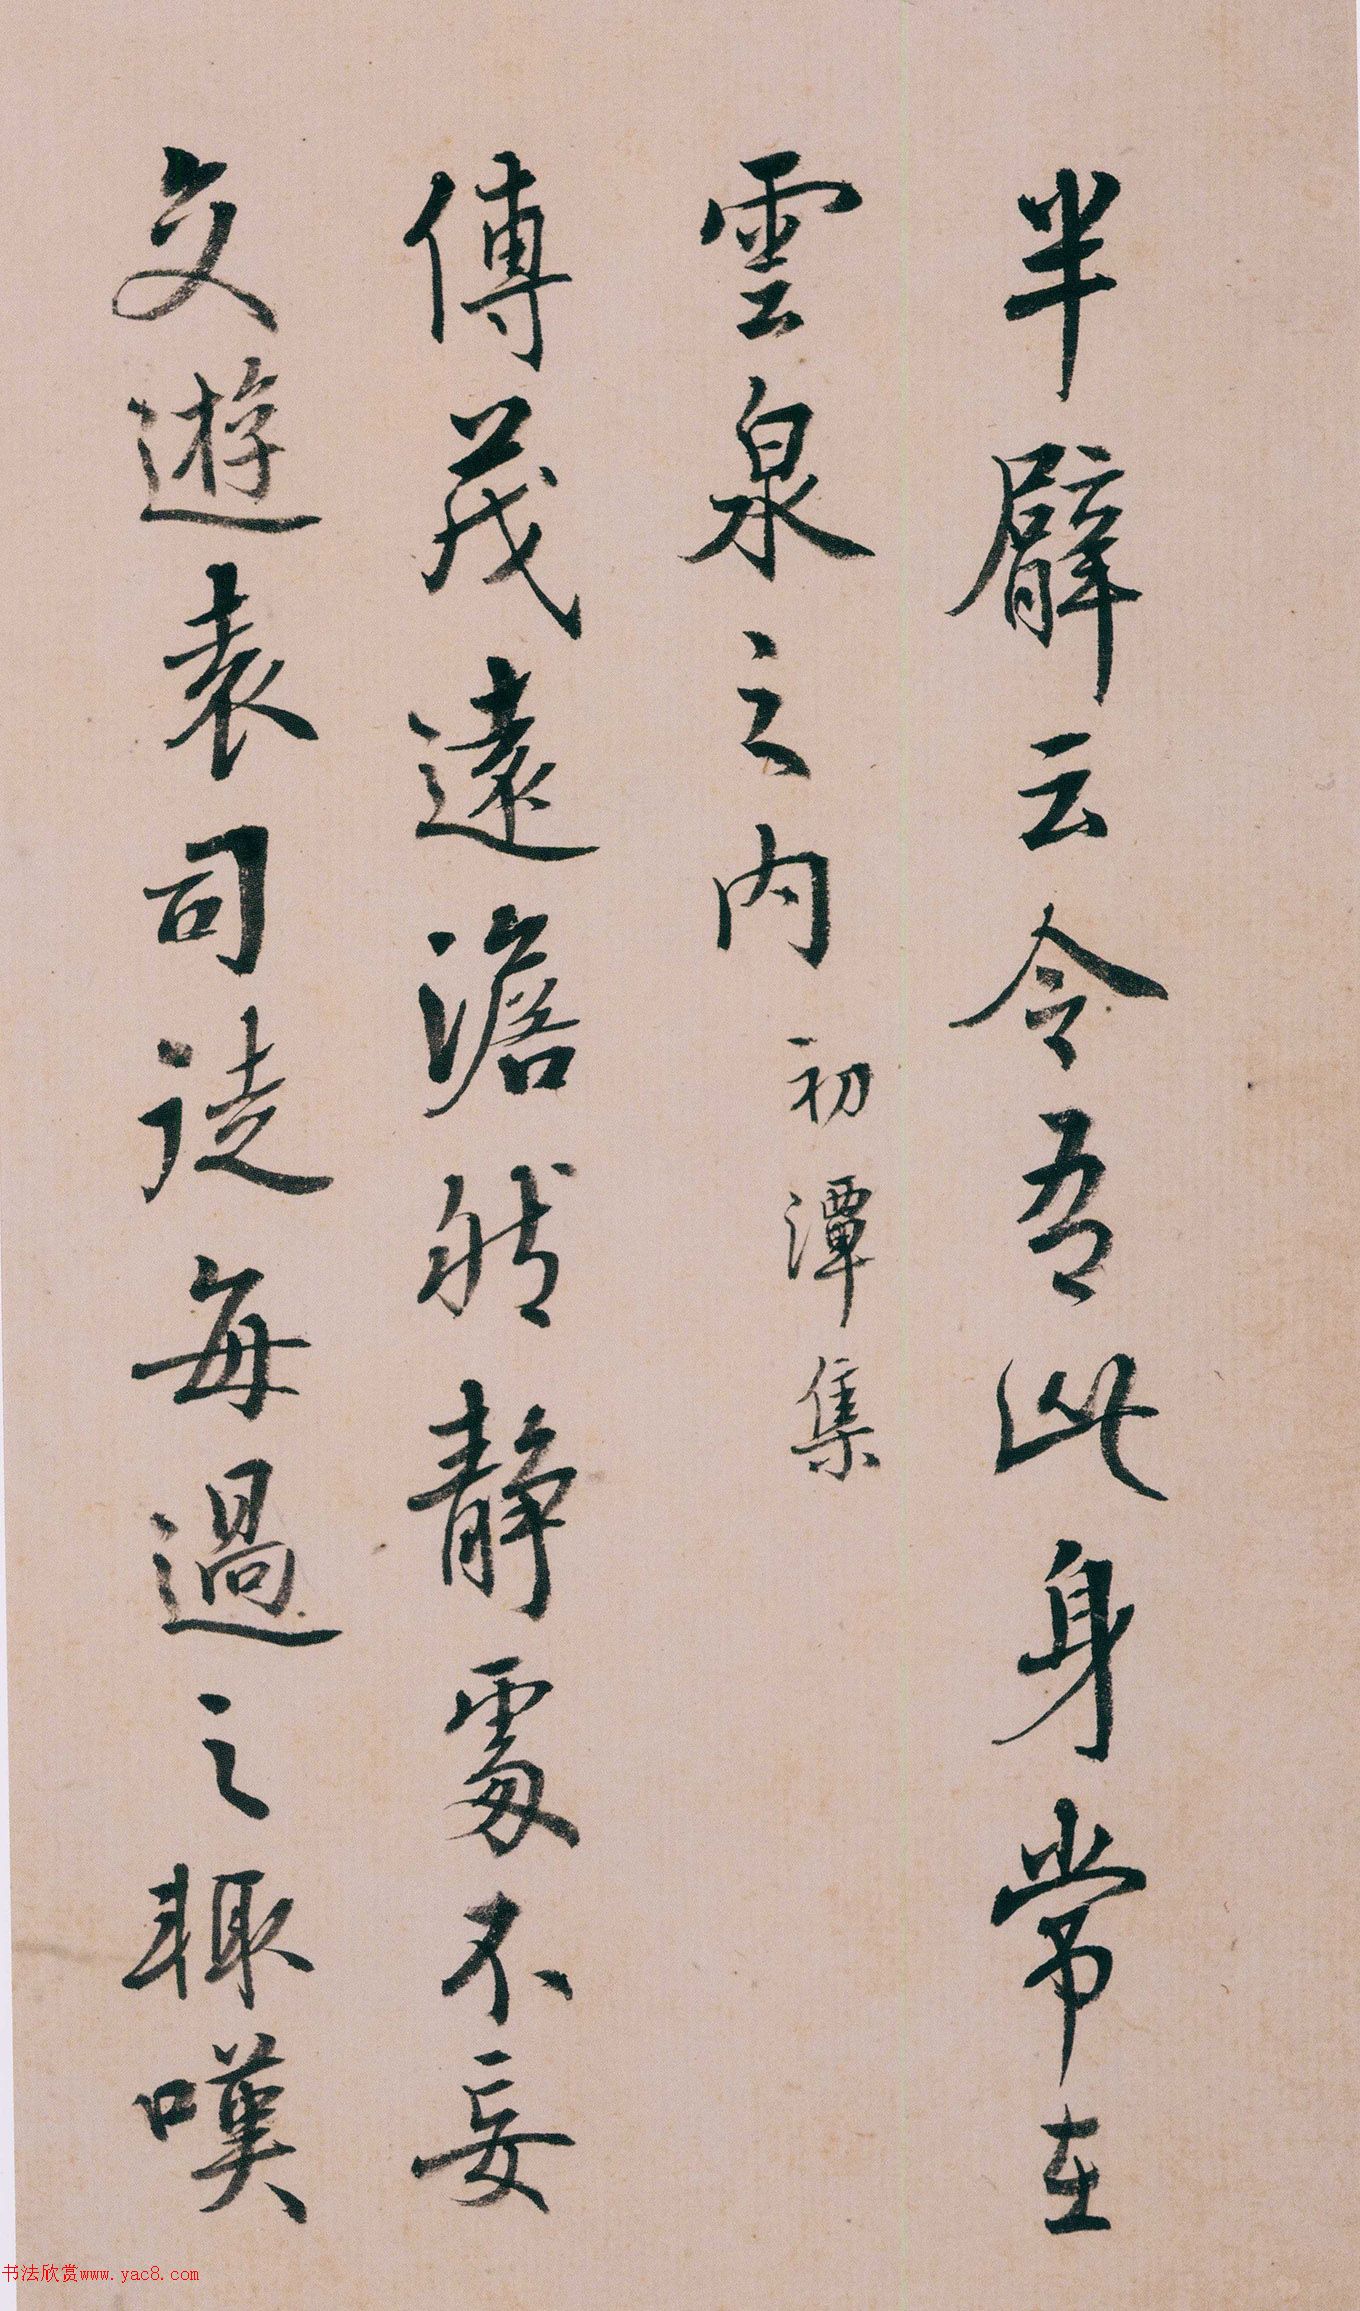 半臂云令吾此身常在
雲泉之內
初潭集
傅茂遠澹然靜處不妄
交遊袁司徒每過之輒嘆
书法欣赏www.yac8.com